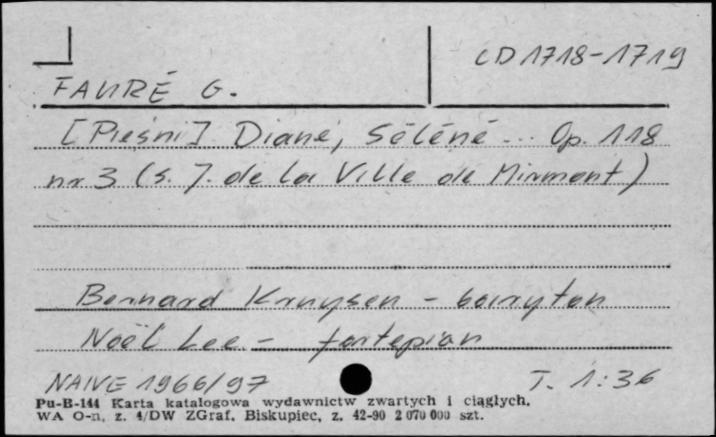 CD 1718-1719
FAURÉ G.
[Pieśni] Diane, Séléné ... Op. 118
nr 3 (s. J. de la Ville de Mirmont)
Bernard Kruysen - baryton
Noël Lee - fortepian
NAIVE 1966/97 T. 1:36
Pu-B-144 Karta katalogowa wydawnictw zwartych i ciągłych.
WA O-n, z. 4/DW ZGraf. Biskupiec, z. 42-90 2 070 000 szt.